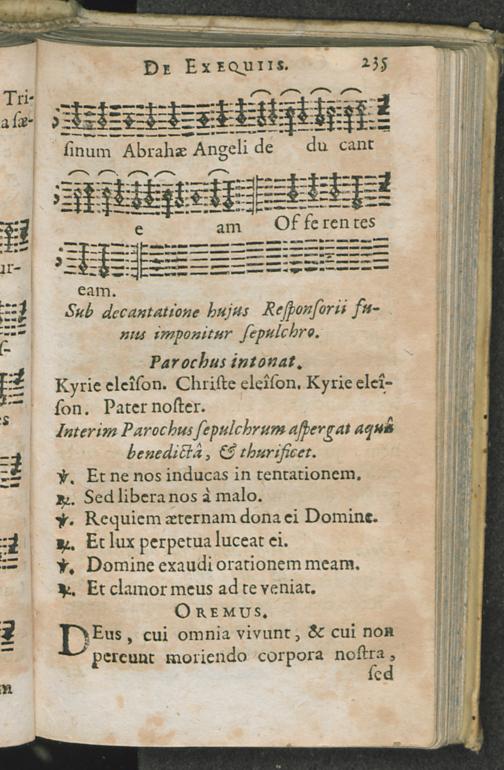 DE EXEQUIIS. 235
ſinum Abrahæ Angeli de du cant
e am Of fe ren tes
eam.
Sub decantatione hujus Reſponſorii fu-
nus imponitur ſepulchro.
Parochus intonat.
Kyrie eleîſon. Chriſte eleîſon. Kyrie eleî-
ſon. Pater noſter.
Interim Parochus ſepulchrum aſpergat aquâ
benedictâ, & thurificet.
℣. Et ne nos inducas in tentationem.
℟. Sed libera nos à malo.
℣. Requiem æternam dona ei Domine.
℟. Et lux perpetua luceat ei.
℣. Domine exaudi orationem meam.
℟. Et clamor meus ad te veniat.
OREMUS.
DEus, cui omnia vivunt, & cui non
pereunt moriendo corpora noſtra,
ſed